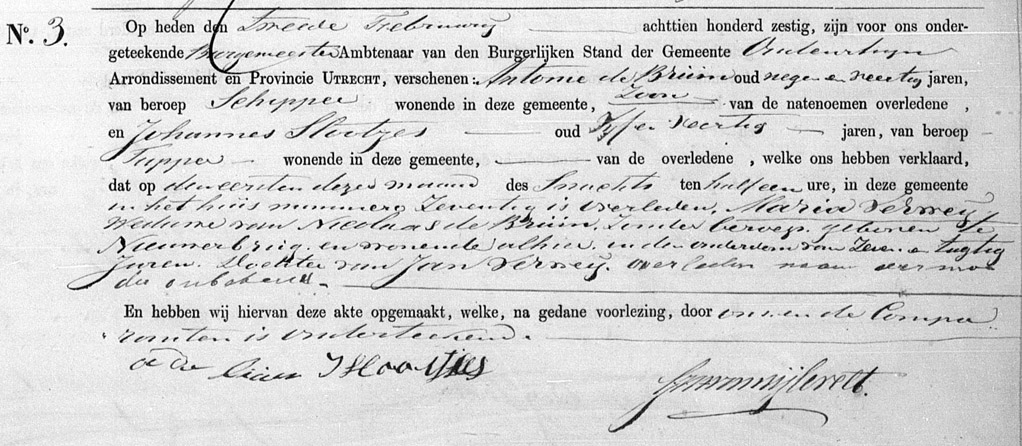 No. 3. Op heden den Tweede Februarij achttien honderd zestig, zijn voor ons onder-
geteekende Burgemeester Ambtenaar van den Burgerlijken Stand der Gemeente Oudenrhyn
Arrondissement en Provincie UTRECHT, verschenen: Antonie de Bruin oud negen en veertig jaren,
van beroep Schipper wonende in deze gemeente, Zoon van de natenoemen overledene ,
en Johannes Slootjes oud Vyf en Veertig jaren, van beroep
Tapper wonende in deze gemeente, van de overledene , welke ons hebben verklaard,
dat op den eersten dezer maand des Snachts ten half een ure, in deze gemeente
in het huis nummero Zeventig is overleden, Maria Verwey
Weduwe van Nicolaas de Bruin, Zonder beroep, geboren te
Nieuwerbrug en wonende alhier, in den ouderdom van Zeven en tagtig
Jaren. Dochter van Jan Verwey, overleden naam der moe
der onbekend.
En hebben wij hiervan deze akte opgemaakt, welke, na gedane voorlezing, door ons en de Compa
ranten is onderteekend.
J Slootjes